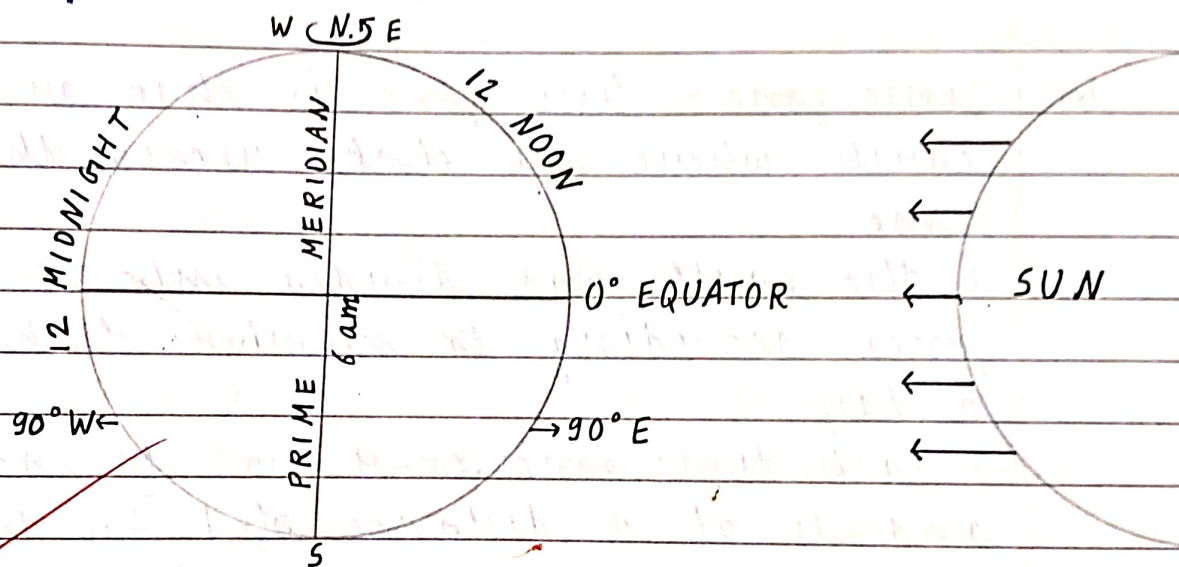 W N.5 E
12 NOON
12 MIDNIGHT
PRIME MERIDIAN
6 am
0° EQUATOR
SUN
90°W
90°E
S